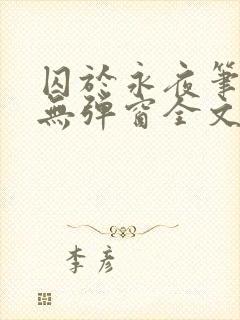 囚於永夜筆
無彈窗全文
李彥